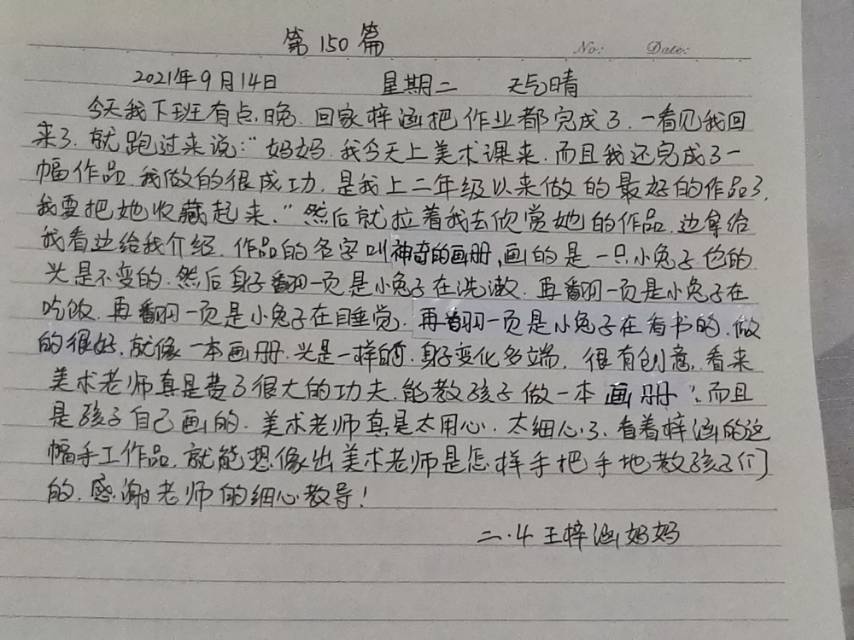 第150篇
No: Date:
2021年9月14日 星期二 天气晴
今天我下班有点晚.回家梓涵把作业都完成了.一看见我回
来了.就跑过来说:“妈妈.我今天上美术课来.而且我还完成了一
幅作品.我做的很成功.是我上二年级以来做的最好的作品了.
我要把她收藏起来.”然后就拉着我去欣赏她的作品.边拿给
我看边给我介绍.作品的名字叫神奇的画册,画的是一只小兔子它的
头是不变的.然后身子翻一页是小兔子在洗漱.再翻一页是小兔子在
吃饭.再翻一页是小兔子在睡觉.再翻一页是小兔子在看书的.做
的很好.就像一本画册.头是一样的.身子变化多端.很有创意.看来
美术老师真是费了很大的功夫.能教孩子做一本画册.而且
是孩子自己画的.美术老师真是太用心.太细心了.看着梓涵的这
幅手工作品.就能想像出美术老师是怎样手把手地教孩子们
的.感谢老师的细心教导!
二.4王梓涵妈妈